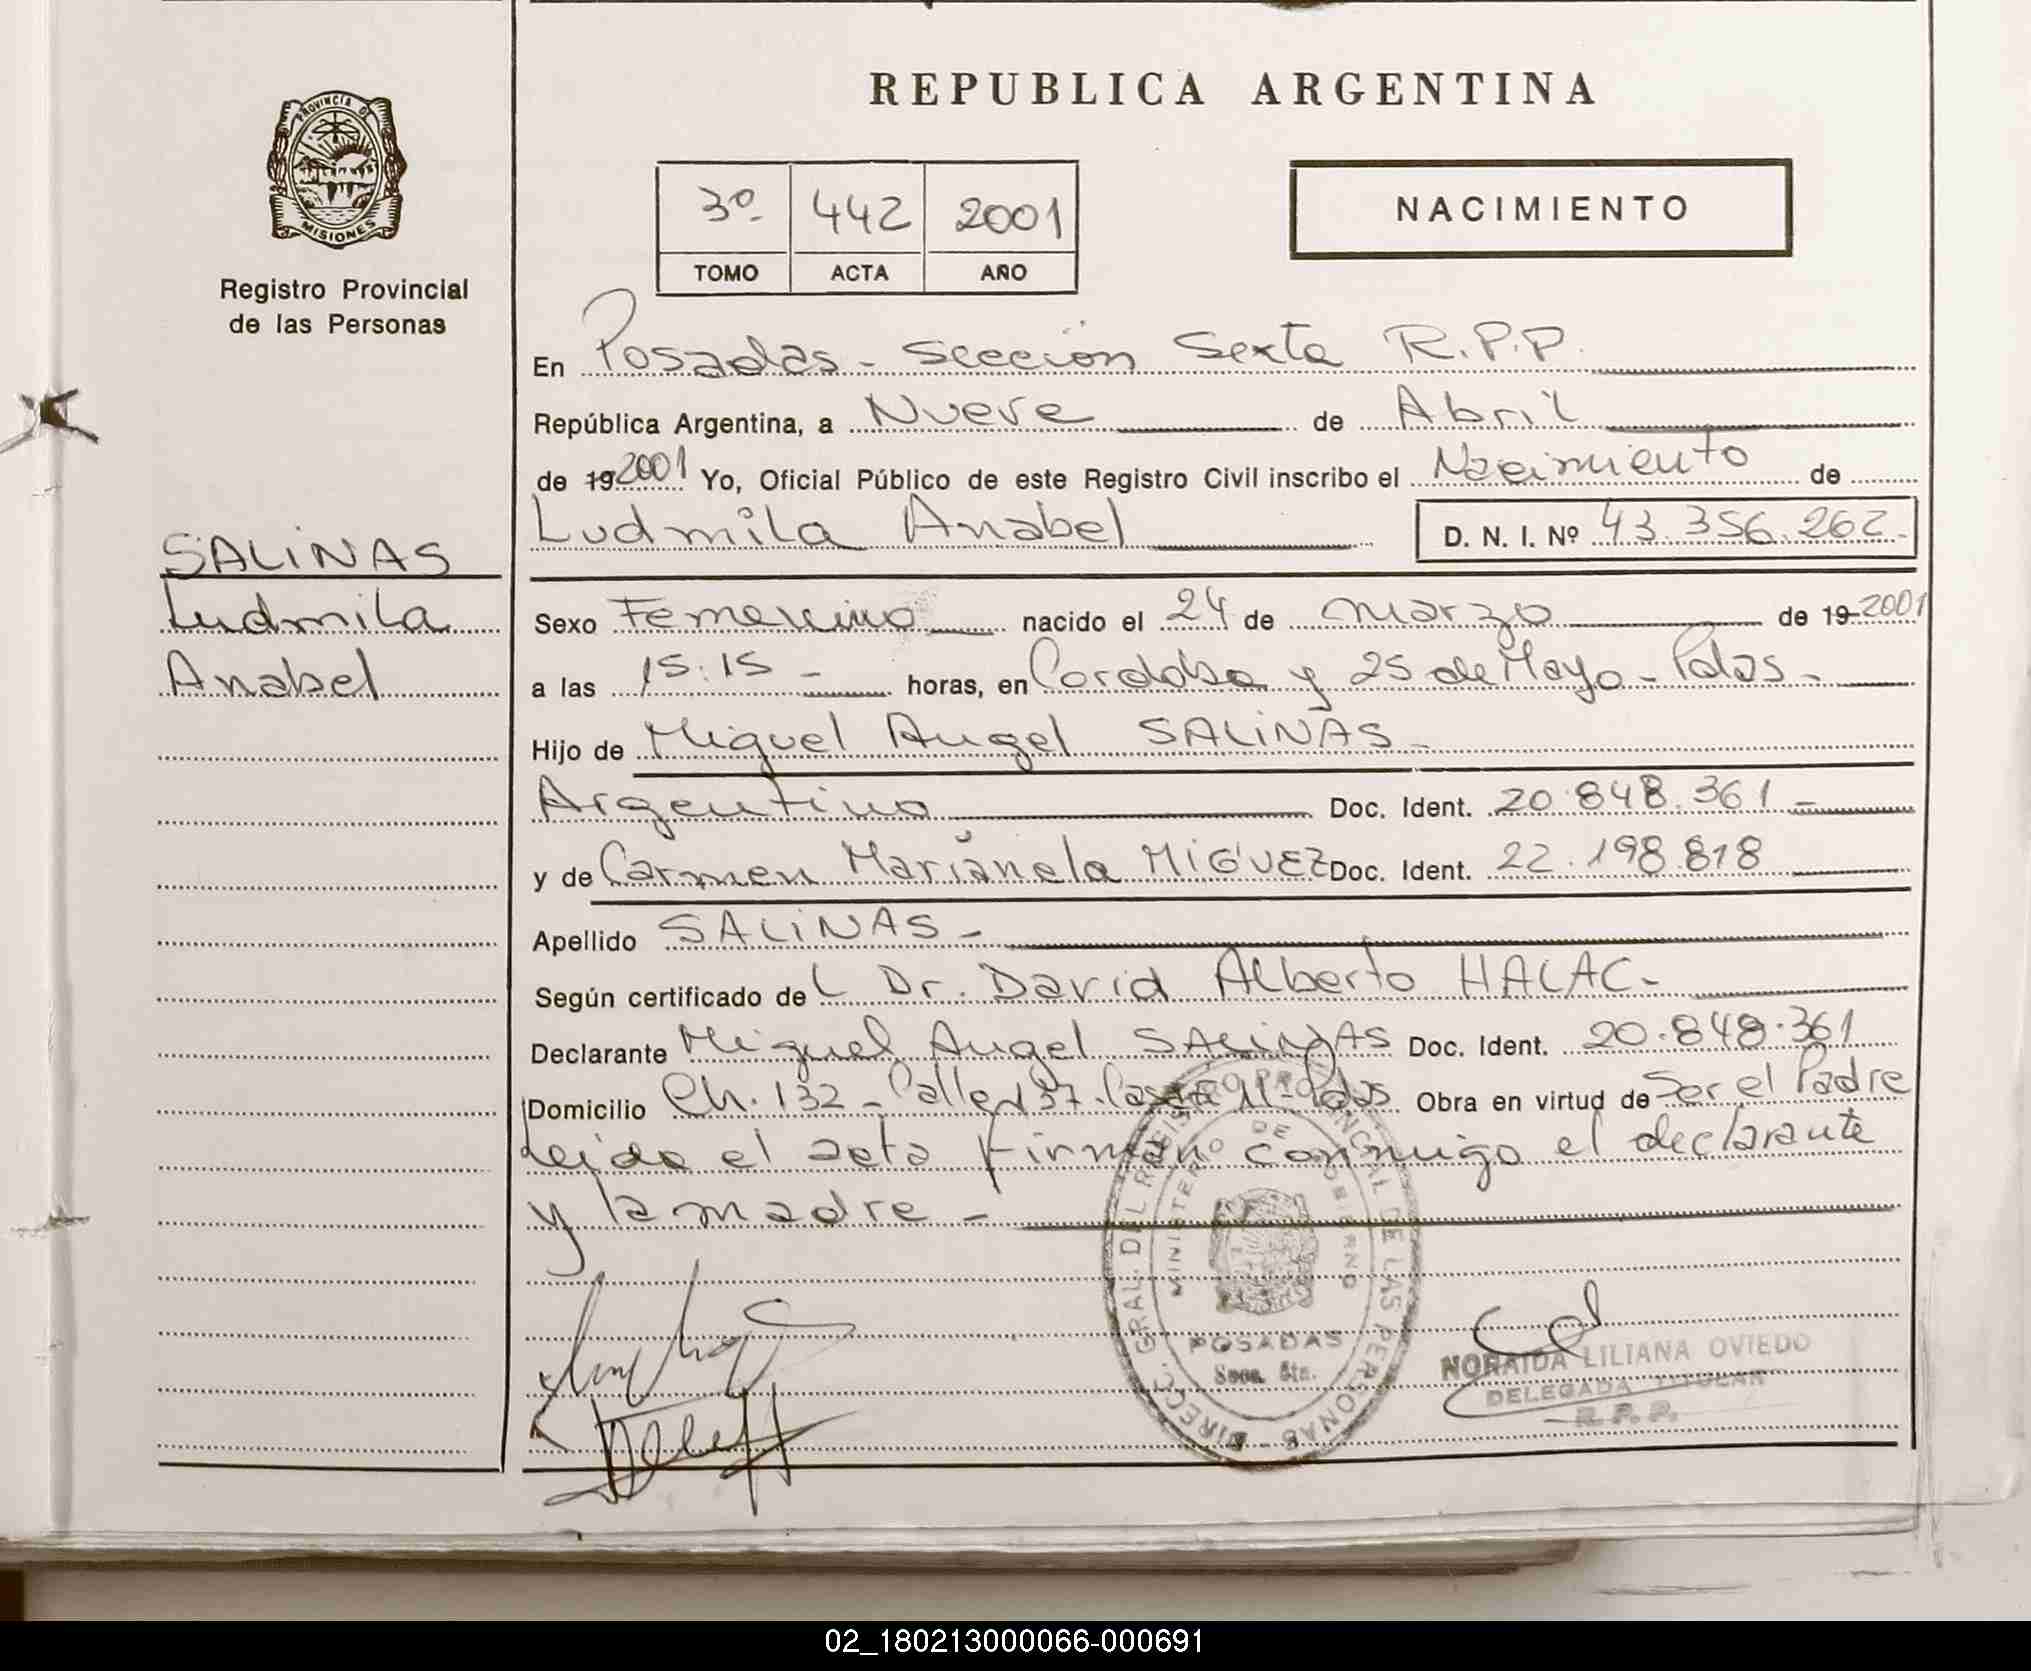 REPUBLICA ARGENTINA
PROVINCIA DE
MISIONES
Registro Provincial
de las Personas
3º 442 2001
TOMO ACTA AÑO
NACIMIENTO
En Posadas - Sección Sexta R.P.P.
República Argentina, a Nueve de Abril
de 19 2001 Yo, Oficial Público de este Registro Civil inscribo el Nacimiento de
Ludmila Anabel D. N. I. Nº 43.356.262-
SALINAS
Ludmila
Anabel
Sexo Femenino nacido el 24 de marzo de 19 2001
a las 15:15 - horas, en Cordoba y 25 de Mayo - Pdas -
Hijo de Miguel Angel SALINAS -
Argentino Doc. Ident. 20.848.361 -
y de Carmen Marianela MIGUEZ Doc. Ident. 22.198.818
Apellido SALINAS -
Según certificado de L Dr. David Alberto HALAC -
Declarante Miguel Angel SALINAS Doc. Ident. 20.848.361
Domicilio Ch. 132 - Calle 137 - Casa 11 - Pdas Obra en virtud de Ser el Padre
Leida el acta firman conmigo el declarante
y la madre -
DIREC. GRAL. DEL REGISTRO PROVINCIAL DE LAS PERSONAS
MINISTERIO DE GOBIERNO
POSADAS
Secc. 6ta.
NORAIDA LILIANA OVIEDO
DELEGADA TITULAR
R.P.P.
02_180213000066-000691